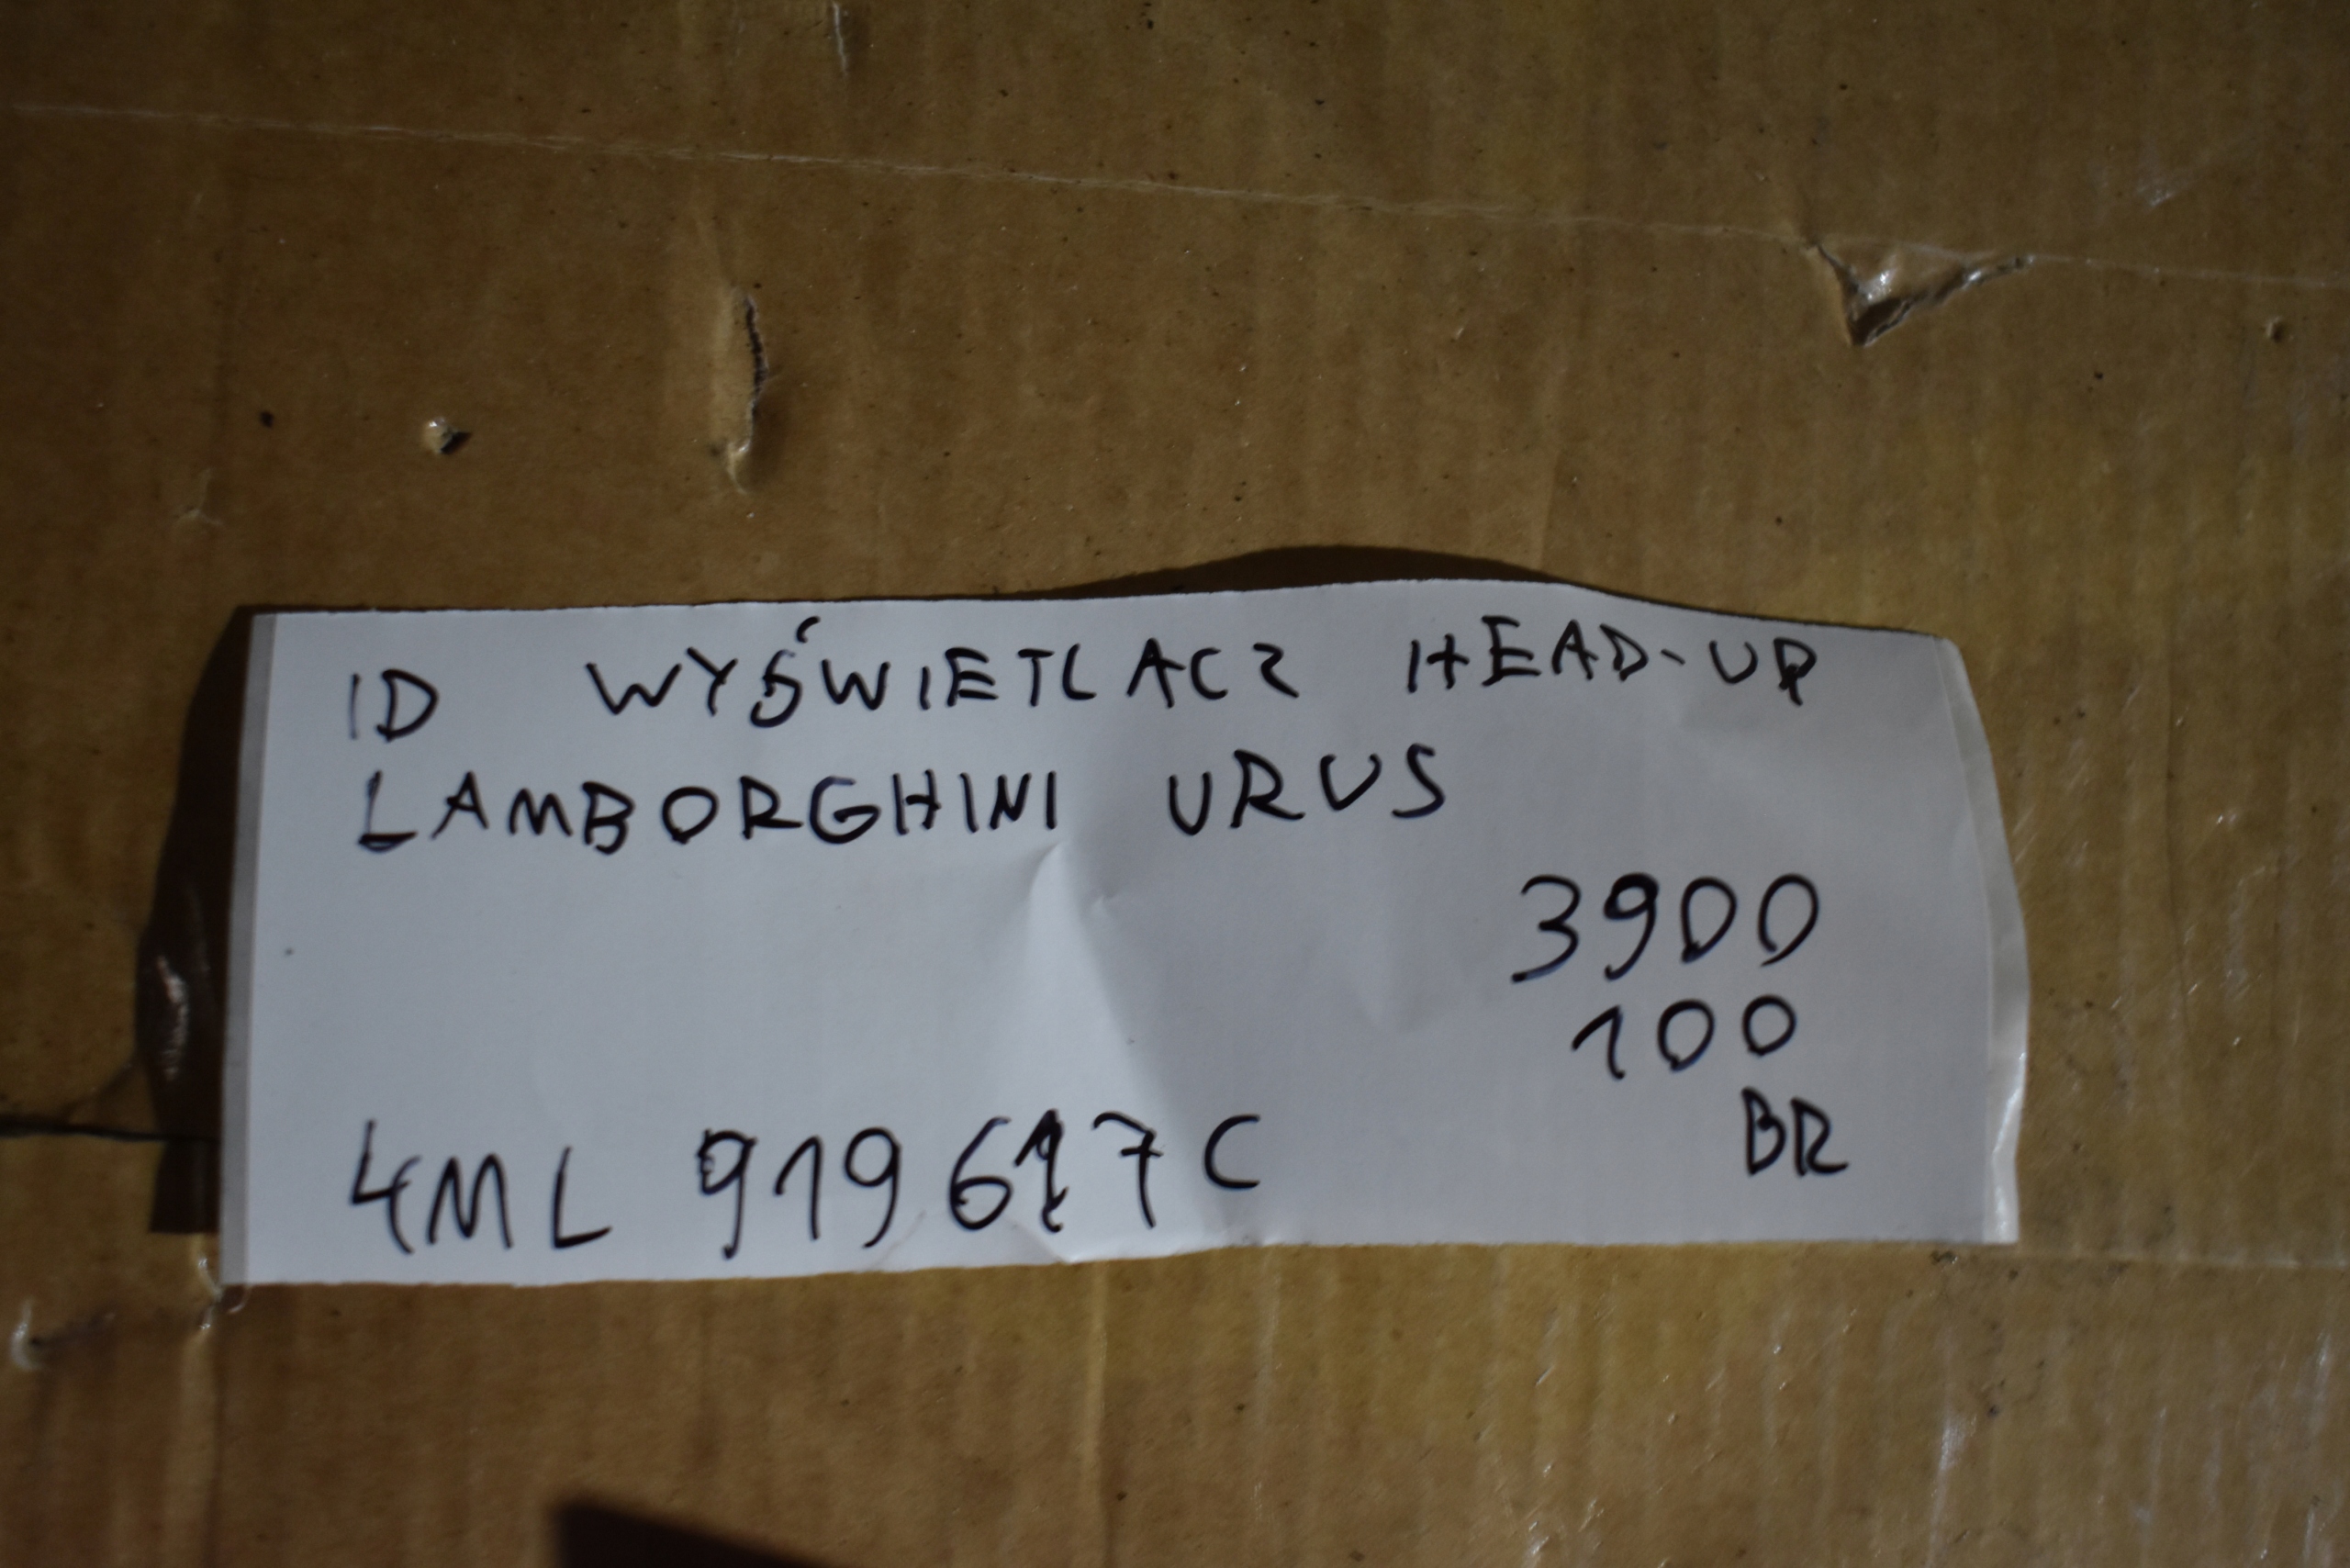 ID WYŚWIETLACZ HEAD-UP
LAMBORGHINI URUS
3900
100
BR
4ML 919617C